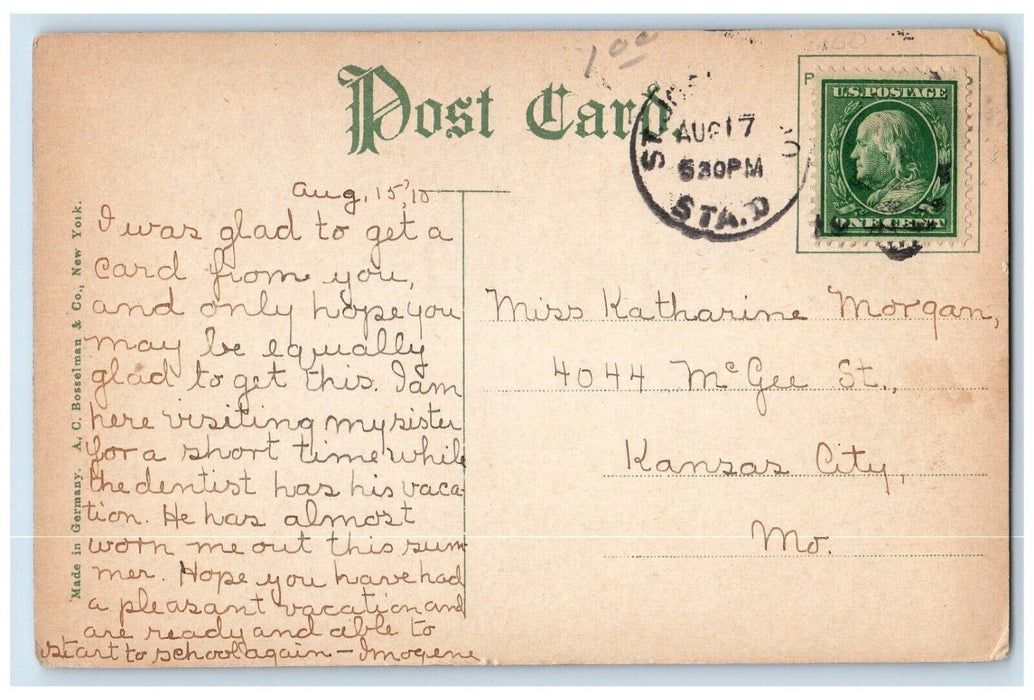 1 00
Post Card.
P
U.S. POSTAGE
ONE CENT
AUG 17
530PM
STA. D
Made in Germany. A. C. Bosselman & Co., New York.
Aug, 15, '10
I was glad to get a
card from you,
and only hope you
may be equally
glad to get this. I am
here visiting my sister
for a short time while
the dentist has his vaca-
tion. He has almost
worn me out this sum-
mer. Hope you have had
a pleasant vacation and
are ready and able to
start to school again - Imogene
Miss Katharine Morgan,
4044 McGee St.,
Kansas City,
Mo.